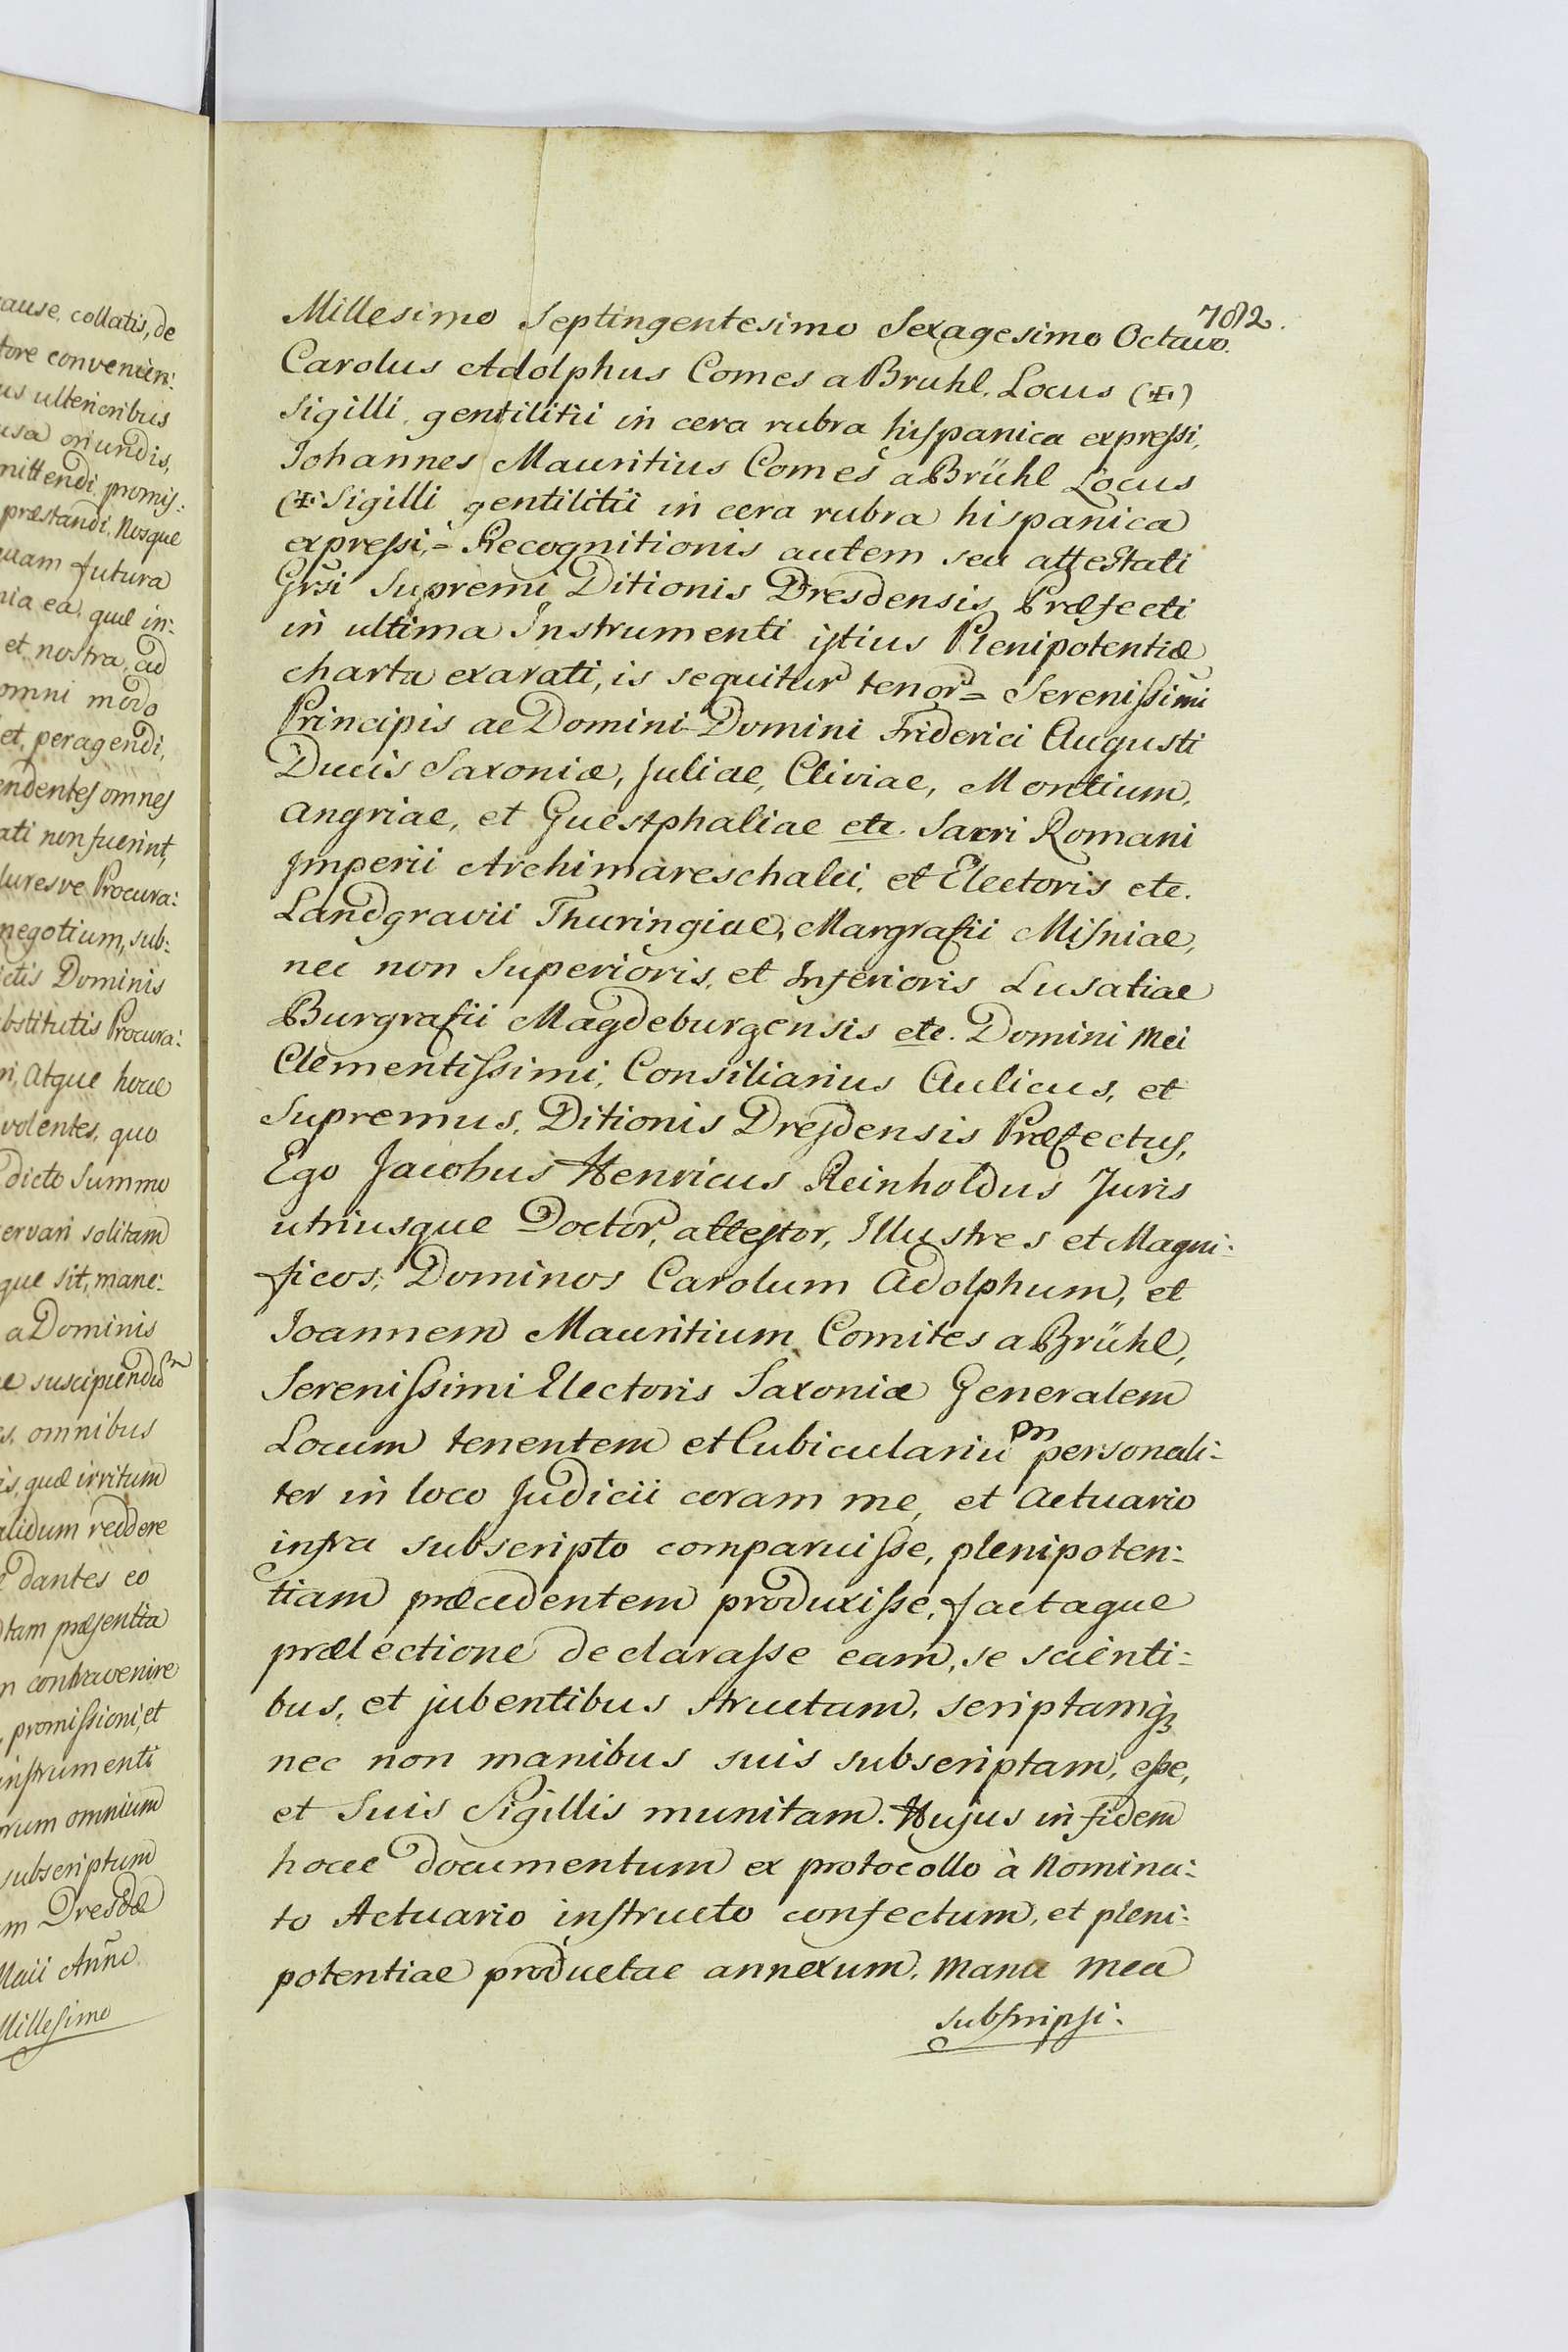 ause, collatis, de
tore convenien:
us ulterioribus
usa oriundis,
mittendi promis:
præstandi. Nosque
quam futura
nia ea, quæ in:
et nostra, ad
omni modo
et, peragendi,
endentes omnes
ati non fuerint,
luresve Procura:
negotium, sub:
ctis Dominis
bstitutis Procura:
ri, Atque hocce
volentes, quo
dicto Summo
ervari solitam
que sit, mane:
a Dominis
e suscipiendum
s, omnibus
is, quæ irritum
alidum reddere
dantes eo
tam præsentia
n contravenire
, promissioni, et
instrumenti
rum omnium
subscriptum
m Dresdæ
Maii Anno
Millesimo
782.
Millesimo Septingentesimo Sexagesimo Octavo.
Carolus Adolphus Comes a Bruhl. Locus (+)
Sigilli gentilitii in cera rubra hispanica expressi,
Iohannes Mauritius Comes a Brühl Locus
(+ Sigilli gentilitii in cera rubra hispanica
expressi, = Recognitionis autem seu attestati
Grsi Supremi Ditionis Dresdensis Præfecti
in ultima Instrumenti istius Plenipotentiæ
charta exarati, is sequitur tenor = Serenissimi
Principis ac Domini Domini Friderici Augusti
Ducis Saxoniæ, Juliae, Cliviae, Montium,
Angriae, et Guestphaliae etc. Sacri Romani
Imperii Archimareschalci, et Electoris etc.
Landgravii Thuringiae, Margrafii Misniae,
nec non Superioris, et Inferioris Lusatiae
Burgrafii Magdeburgensis etc. Domini Mei
Clementissimi, Consiliarius Aulicus, et
Supremus, Ditionis Dresdensis Præfectus,
Ego Jacobus Henricus Reinholdus Juris
utriusque Doctor, attestor, Illustres et Magni:
ficos, Dominos Carolum Adolphum, et
Joannem Mauritium Comites a Brühl,
Serenissimi Electoris Saxoniæ Generalem
Locum tenentem et Cubiculariũm personali:
ter in loco Judicii coram me, et Actuario
infra subscripto comparuisse, plenipoten:
tiam præcedentem produxisse, factaque
prælectione declarasse eam, se scienti:
bus, et jubentibus structam, scriptamq3
nec non manibus suis subscriptam, esse,
et Suis Sigillis munitam. Hujus in fidem
hocce documentum ex protocollo à Nomina:
to Actuario instructo confectum, et pleni:
potentiae productae annexum, Manu Mea
subscripsi: